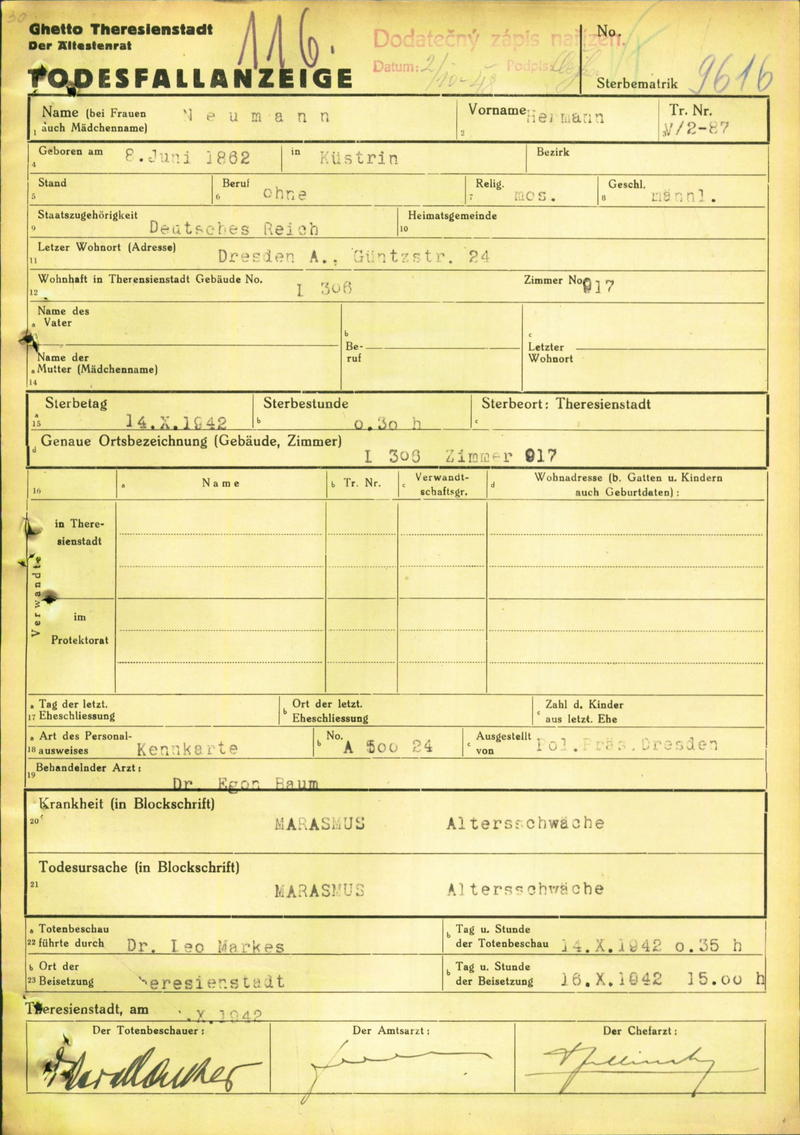 Ghetto Theresienstadt
Der Ältestenrat
116.
Dodatečný zápis nařízen.
Datum: Podpis:
No.
TODESFALLANZEIGE
Sterbematrik 9616
Name (bei Frauen auch Mädchenname) Neumann
1
Vorname: Hermann
2
Tr. Nr. V/2-87
3
Geboren am 8.Juni 1862
4
in Küstrin
Bezirk
Stand
5
Beruf ohne
6
Relig. mos.
7
Geschl. männl.
8
Staatszugehörigkeit Deutsches Reich
9
Heimatsgemeinde
10
Letzer Wohnort (Adresse) Dresden A., Güntzstr. 24
11
Wohnhaft in Therensienstadt Gebäude No. I 306
12
Zimmer No. 917
Name des
a Vater
b
Be-
ruf
c
Letzter
Wohnort
Name der
a Mutter (Mädchenname)
14
a Sterbetag 14.X.1942
15
Sterbestunde
b 0.30 h
Sterbeort: Theresienstadt
c
Genaue Ortsbezeichnung (Gebäude, Zimmer)
d I 306 Zimmer 917
16
a Name
b Tr. Nr.
c Verwandt-
schaftsgr.
d Wohnadresse (b. Gatten u. Kindern
auch Geburtdaten):
Verwandte
in There-
sienstadt
im
Protektorat
a Tag der letzt.
17 Eheschliessung
b Ort der letzt.
Eheschliessung
c Zahl d. Kinder
aus letzt. Ehe
a Art des Personal-
18 ausweises Kennkarte
b No. A 500 24
c Ausgestellt
von Pol.Präs.Dresden
Behandelnder Arzt:
19 Dr. Egon Baum
Krankheit (in Blockschrift)
20 MARASMUS Altersschwäche
Todesursache (in Blockschrift)
21 MARASMUS Altersschwäche
a Totenbeschau
22 führte durch Dr. Leo Markes
b Tag u. Stunde
der Totenbeschau 14.X.1942 0.35 h
b Ort der
23 Beisetzung Theresienstadt
b Tag u. Stunde
der Beisetzung 16.X.1942 15.00 h
Theresienstadt, am .X.1942
Der Totenbeschauer:
Der Amtsarzt:
Der Chefarzt: